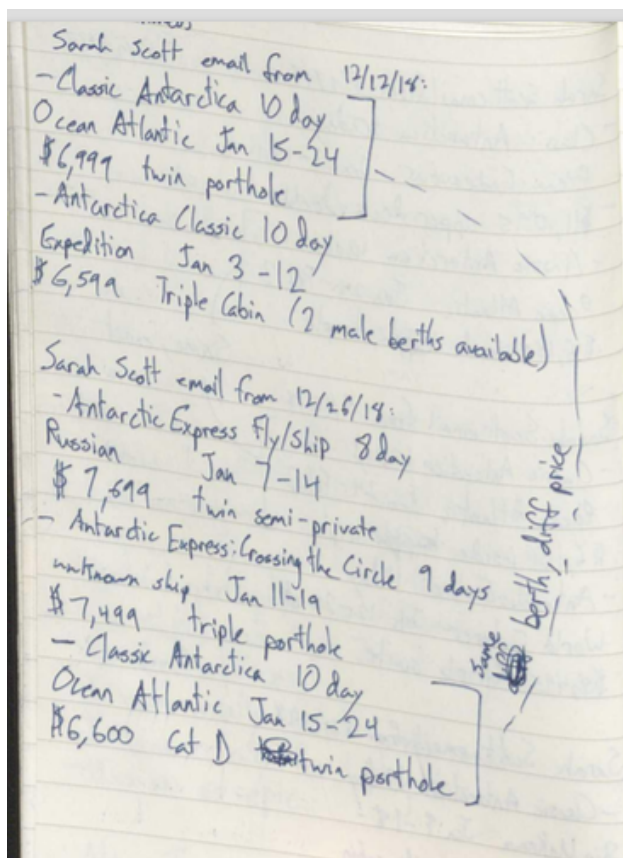 Sarah Scott email from 12/12/18:
- Classic Antarctica 10 day
Ocean Atlantic Jan 15-24
$6,999 twin porthole
- Antarctica Classic 10 day
Expedition Jan 3-12
$6,599 Triple Cabin (2 male berths available)
Sarah Scott email from 12/26/18:
- Antarctic Express Fly/Ship 8 day
Russian Jan 7-14
$7,699 twin semi-private
- Antarctic Express: Crossing the Circle 9 days
unknown ship Jan 11-19
$7,499 triple porthole
- Classic Antarctica 10 day
Ocean Atlantic Jan 15-24
$6,600 Cat D twin porthole
same berth, diff price